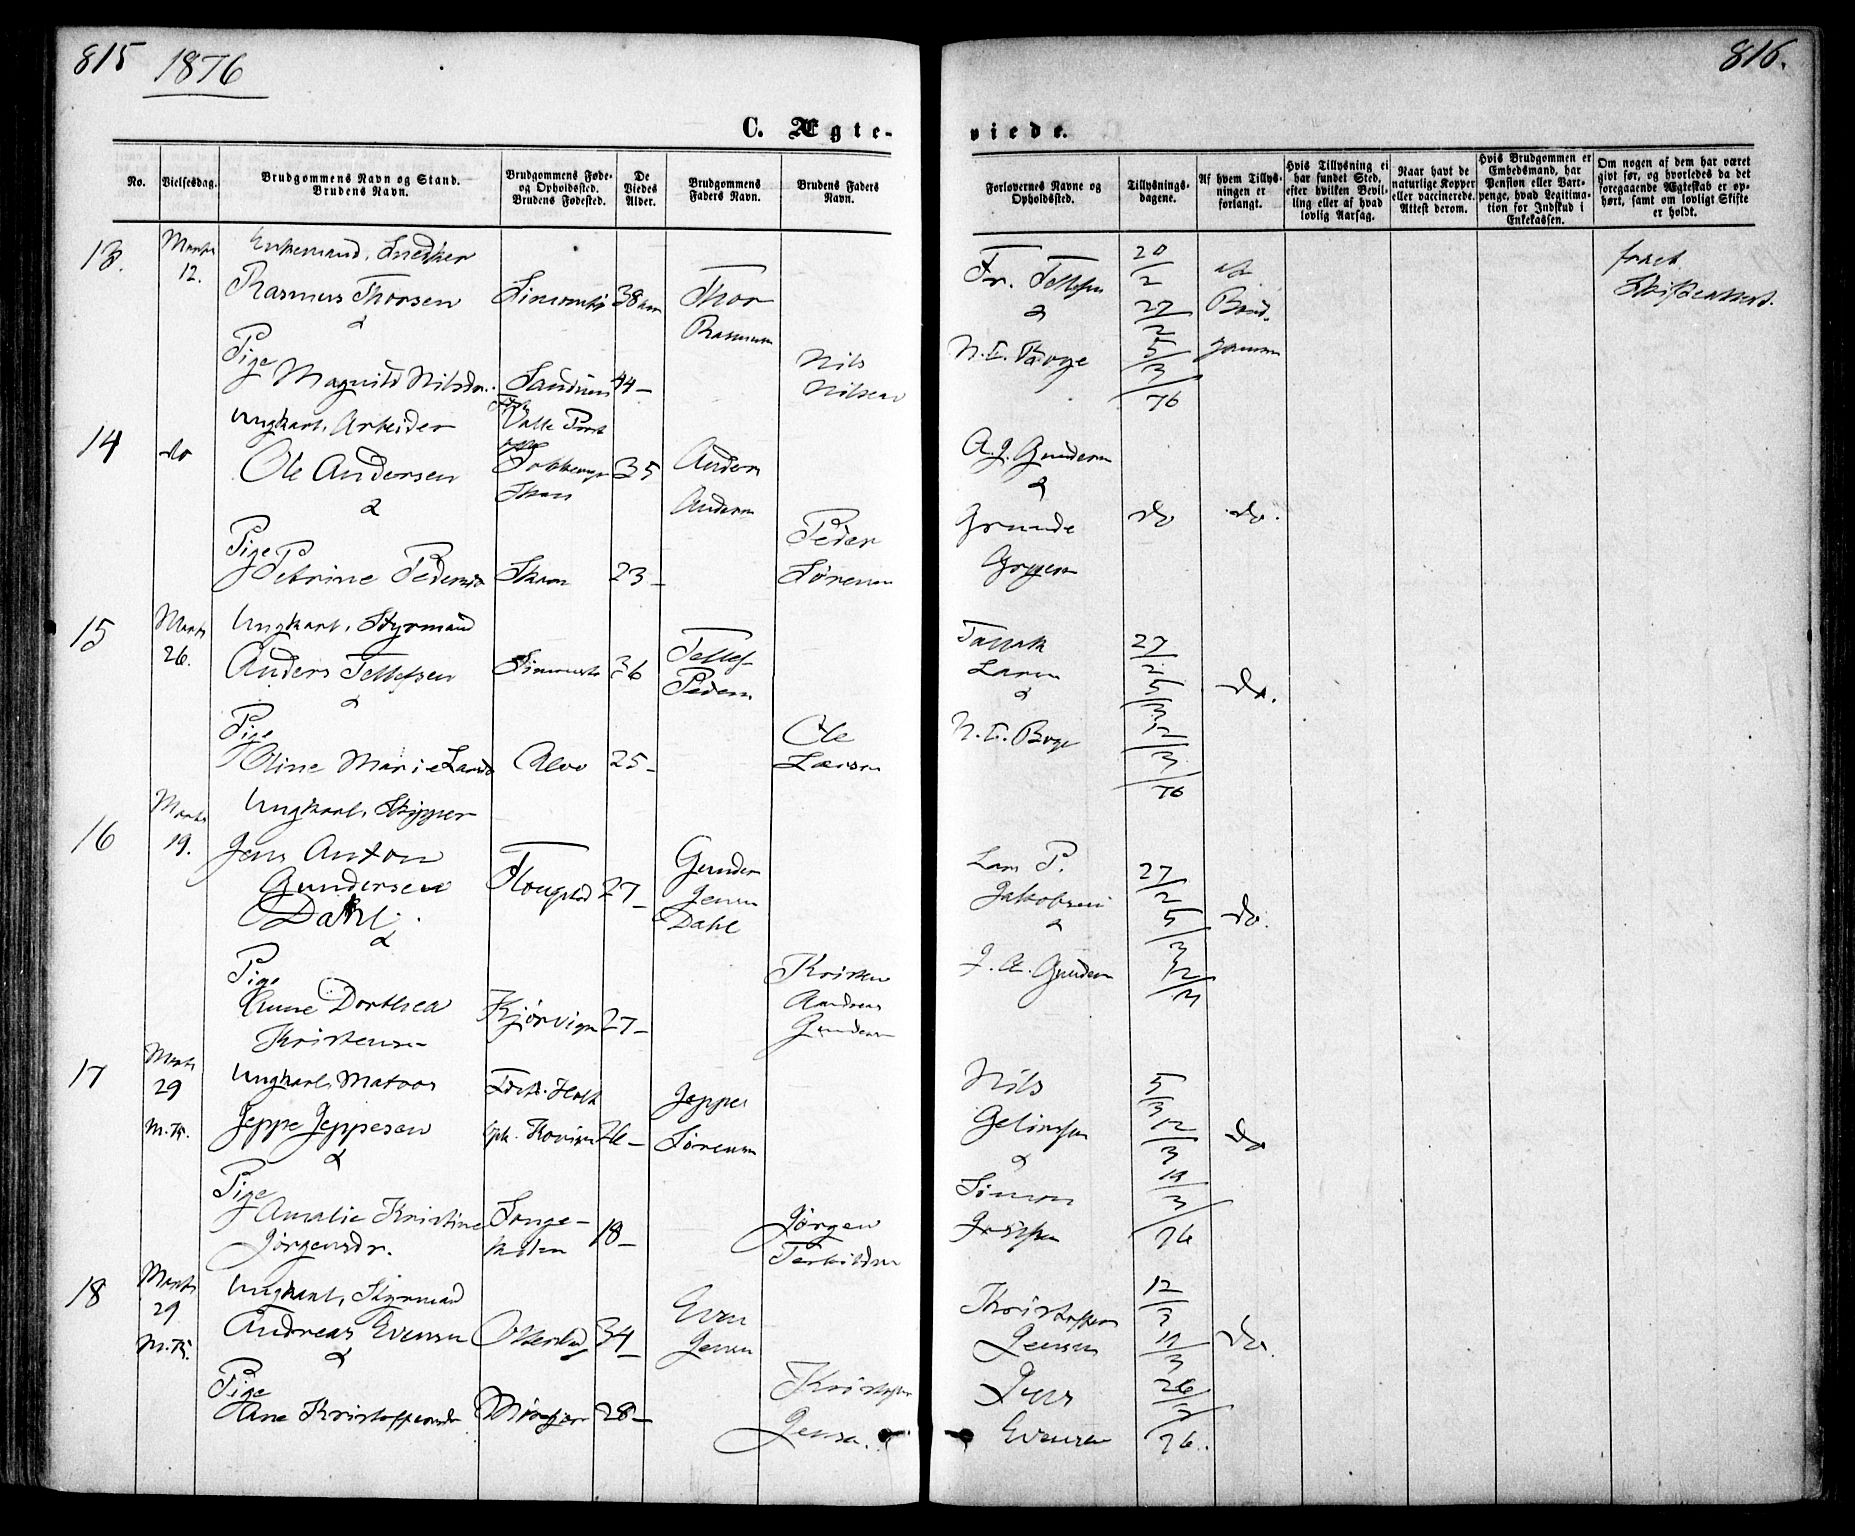 815 1876
816.
C. Ægte-
viede.
No.
Vielsesdag.
Brudgommens Navn og Stand.
Brudens Navn.
Brudgommens Føde-
og Opholdssted.
Brudens Fødested.
De
Viedes
Alder.
Brudgommens
Faders Navn.
Brudens Faders
Navn.
Forlovernes Navne og
Opholdssted.
Tillysnings-
dagene.
Af hvem Tillys-
ningen er
forlangt.
Hvis Tillysning ei
har fundet Sted,
efter hvilken Bevil-
ling eller af hvad
lovlig Aarsag.
Naar havt de
naturlige Kopper
eller vaccinerede.
Attest derom.
Hvis Brudgommen er
Embedsmand, har
Pension eller Vart-
penge, hvad Legitima-
tion for Indskud i
Enkekassen.
Om nogen af dem har været
givt før, og hvorledes da det
foregaaende Ægteskab er op-
hørt, samt om lovligt Skifte
er holdt.
13.
Marts
12.
Enkemand, Snedker
Rasmus Thorsen
&
38
Thor
Rasmussen
Fr. Tellefsen
&
20/2
27/2
5/3
76
Pige
Magnild Nilsdr.
44-
Nils
Nilsen
14
do
Ungkarl, Arbeider
Ole Andersen
&
35
Anders
Andersen
A. J. Gundersen
&
do
do.
Pige
Petrine Pedersdr
23-
Peder
Sørensen
15
Marts
26.
Ungkarl, Styrmand
Anders Tellefsen
&
36
Tellef
Pedersen
Larsen
&
27/2
5/3
12/3
76
do.
Pige
Oline Marie Larsdr
25-
Ole
Larsen
16
Marts
19.
Ungkarl, Skipper
Jens Anton
Gundersen
Dahl
&
27-
Gunder
Jensen
Dahl
Lars P.
Jakobsen
&
J. A. Gundersen
27/2
5/3
12/3
do.
Pige
Anne Dorthea
Kristensdr
Kjørvigen
27-
Kristen
Andreas
Gundersen
17
Marts
29
M.K.
Ungkarl, Matros
Jeppe Jeppesen
&
26-
Jeppe
Sørensen
Nils
&
5/3
12/3
19/3
76
do
Pige
Amalie Kristine
Jørgensdr.
Songe-
kilen
18-
Jørgen
Terkildsen
18
Marts
29
M.K.
Ungkarl, Styrmand
Andreas Evensen
&
34-
Even
Jensen
Kristoffer
Jensen
Jens
Evensen
12/3
19/3
26/3
76.
do.
Pige
Ane Kristoffersdr
28-
Kristoffer
Jensen.